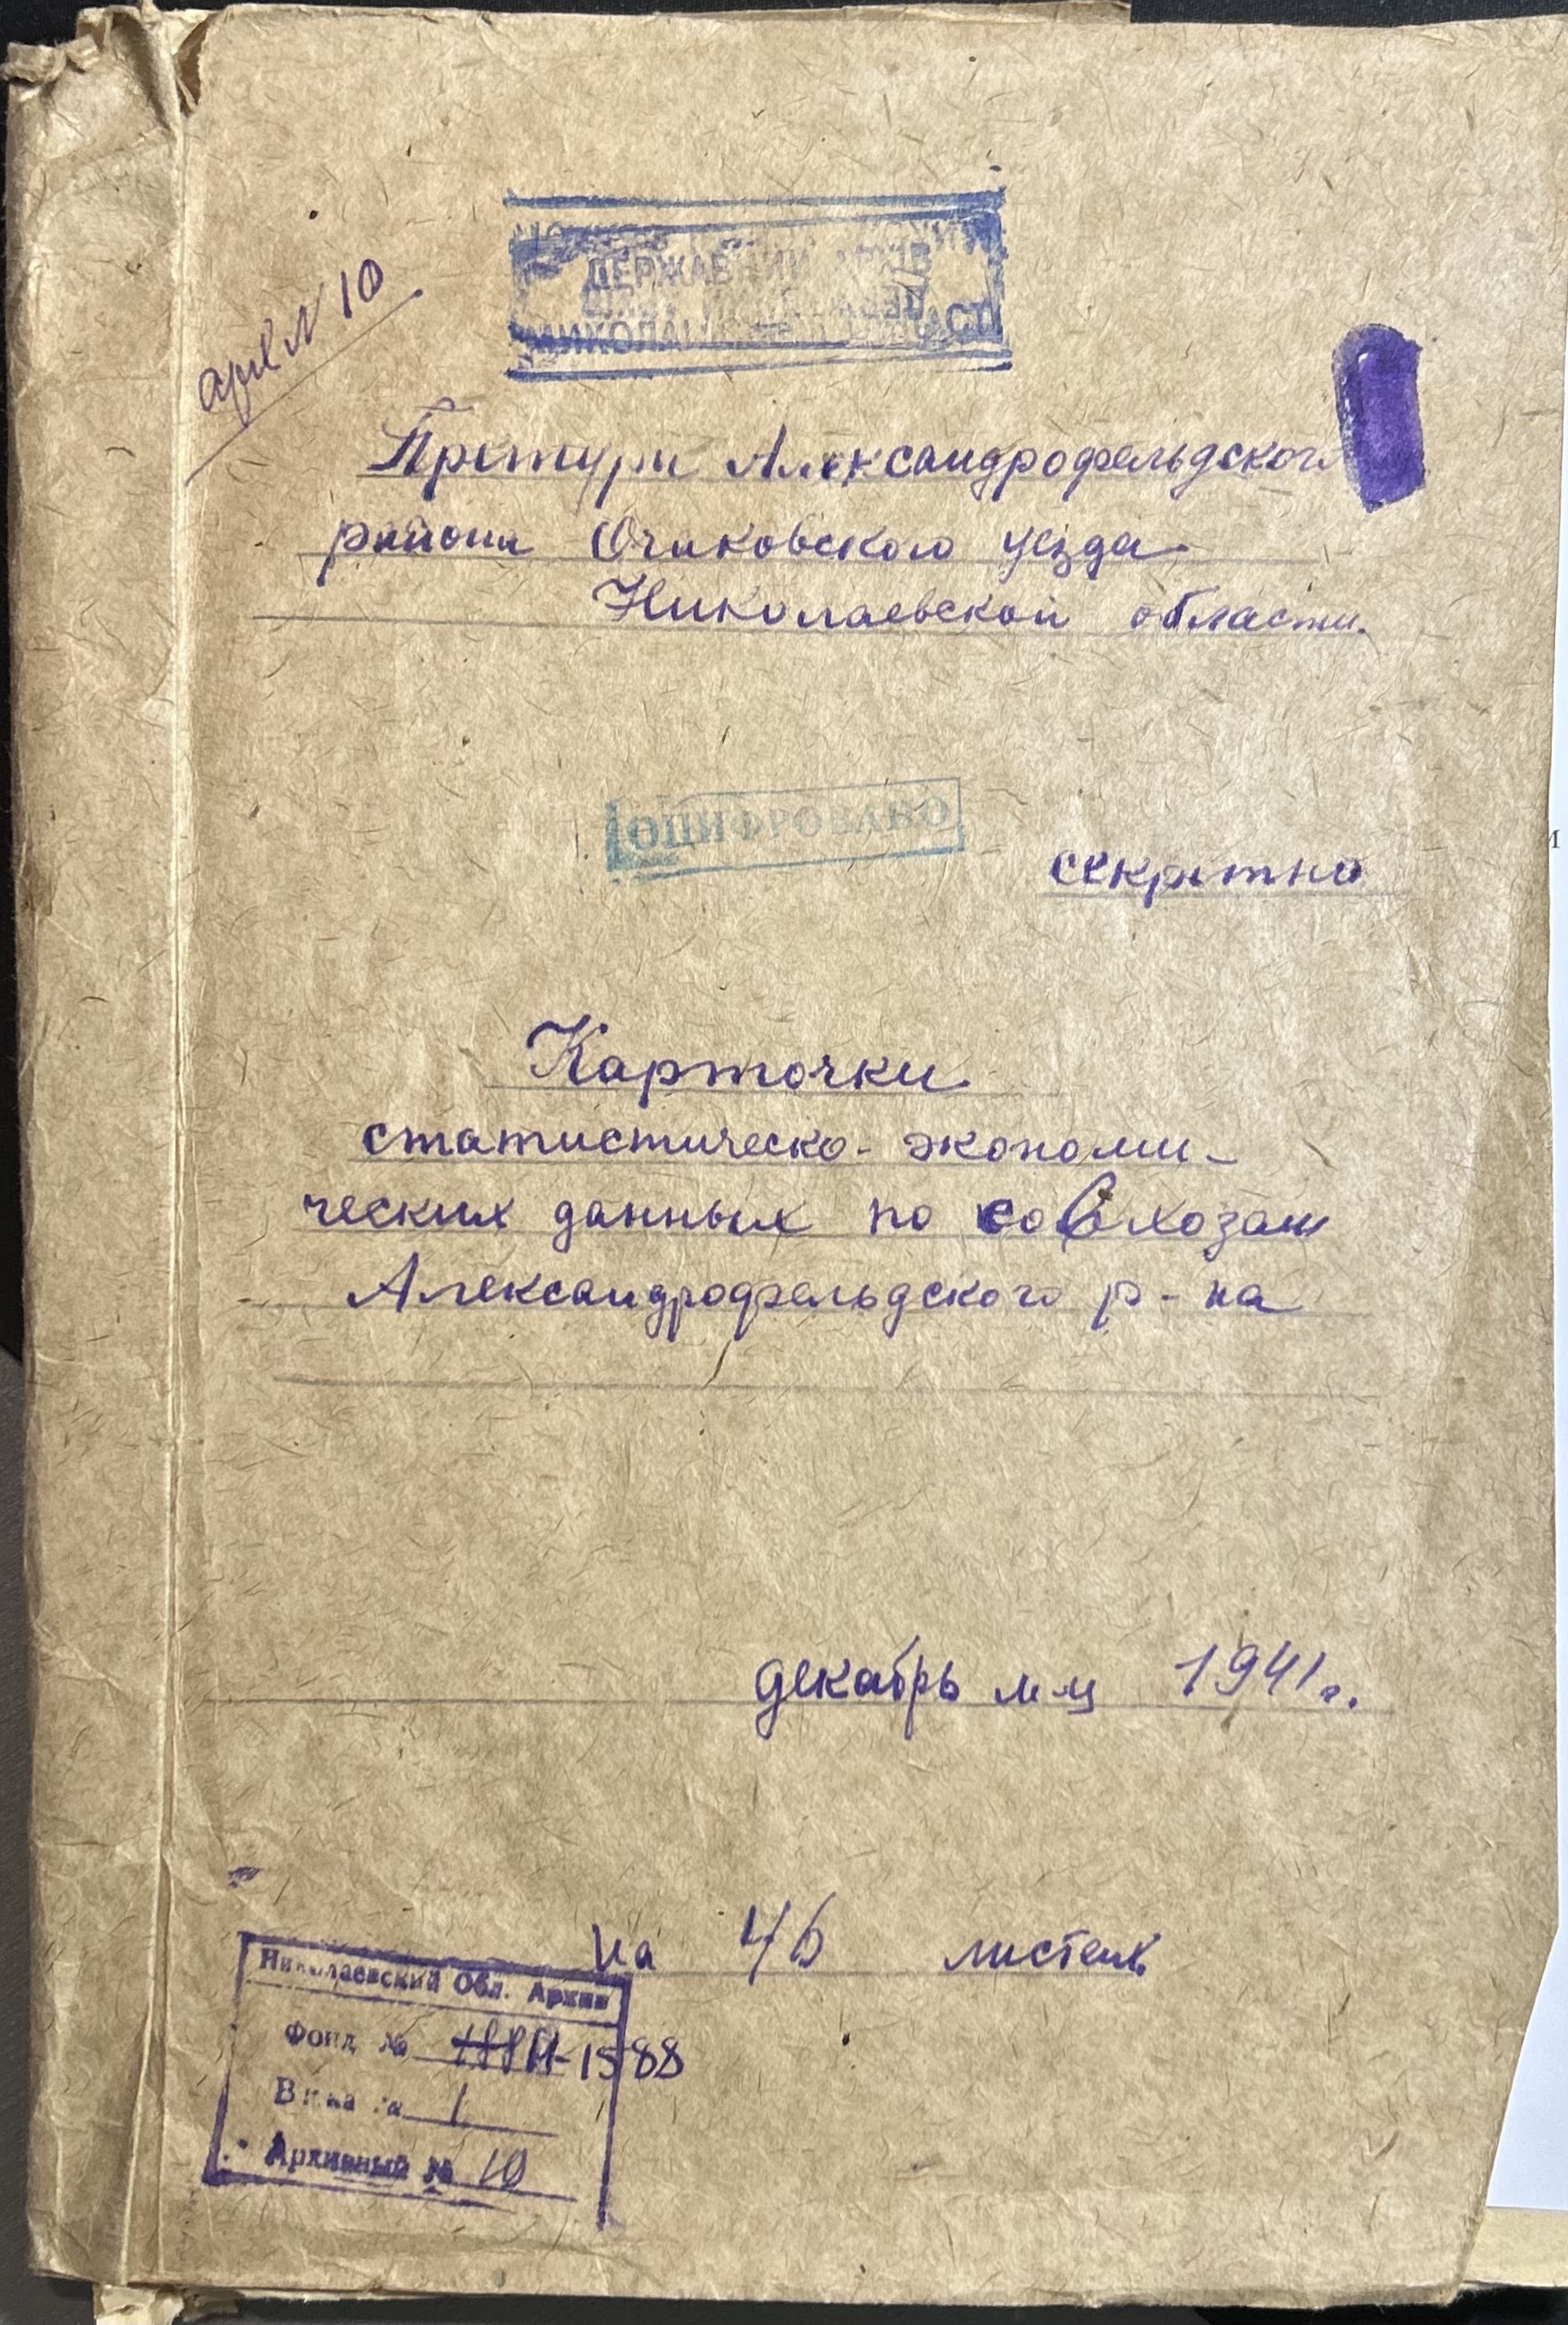 арх № 10
ДЕРЖАВНИЙ АРХІВ
Претура Александрофельдского
района Очаковского уезда
Николаевской области.
ОЦИФРОВАНО
секретно
Карточки
статистическо- экономи-
ческих данных по совхозам
Александрофельдского р-на
декабрь м-ц 1941 г.
на 46 листах
Николаевский Обл. Архив
Фонд № Р-1588
1
Архивный № 10